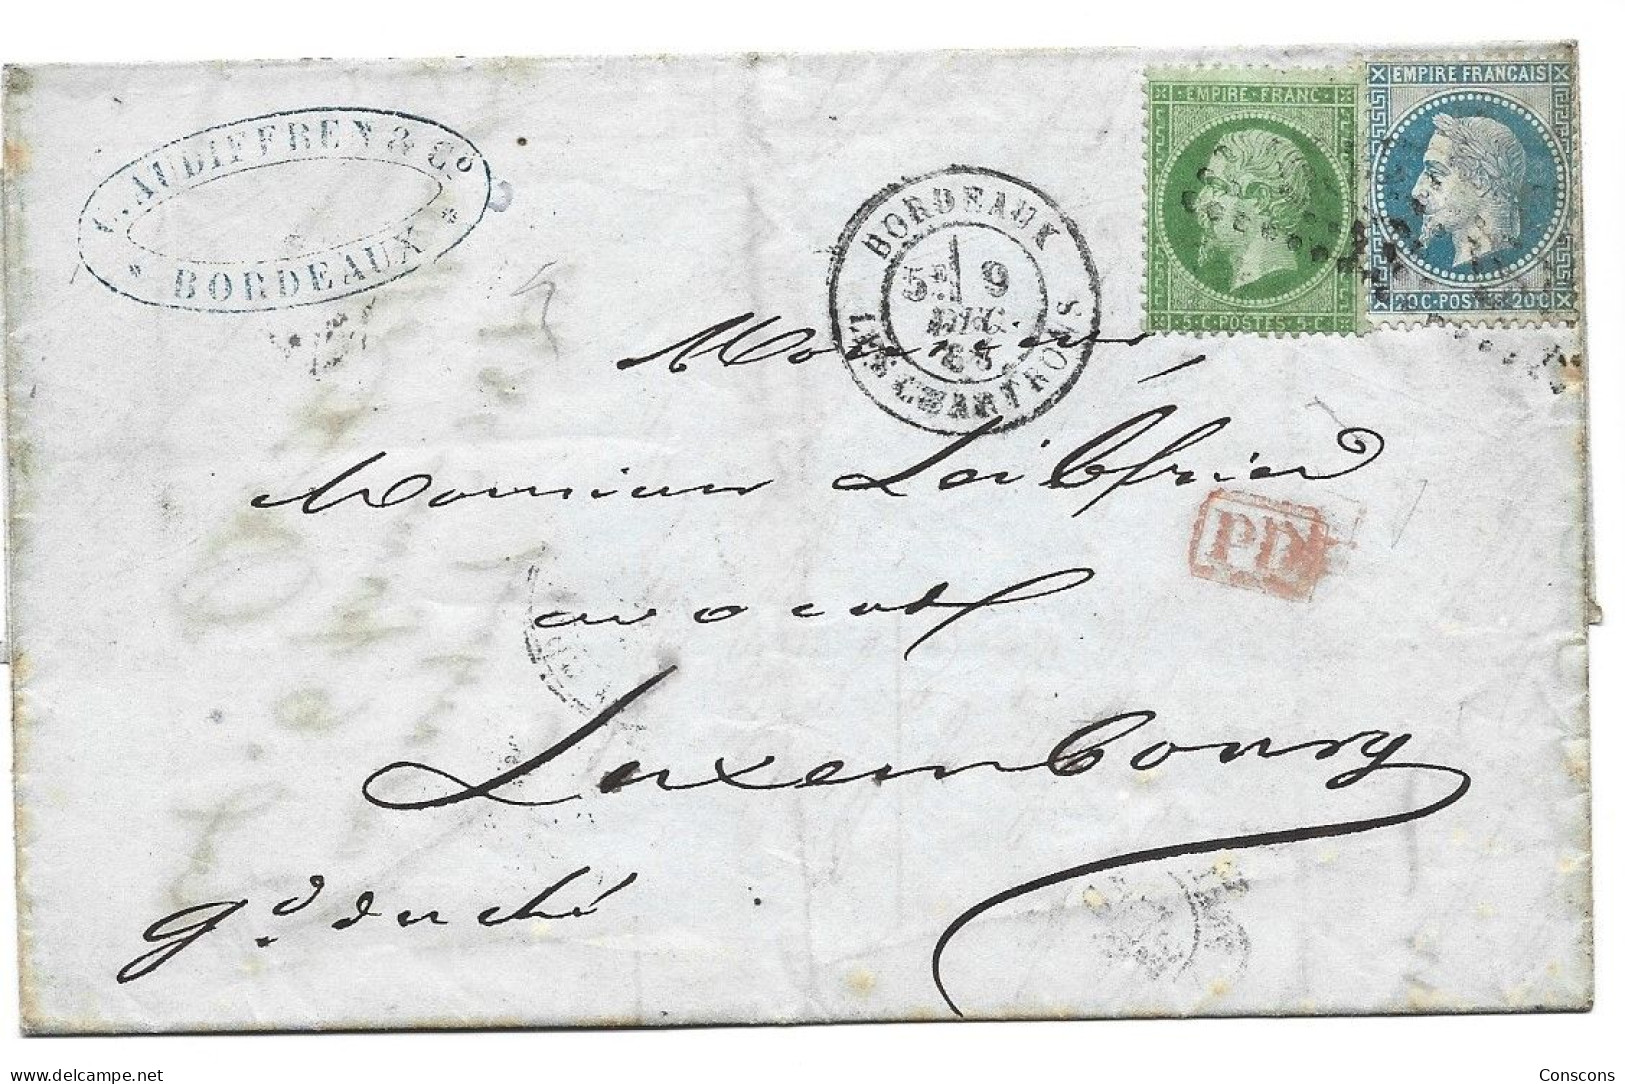 L. AUDIFFREN & Cº
* BORDEAUX *
BORDEAUX
5E 9
DEC.
68
LES CHARTRONS
EMPIRE·FRANC·
5·C·POSTES·5·C
EMPIRE FRANÇAIS
20C·POSTES·20C
Monsieur,
Monsieur Leibfried
PD
avocat
Luxembourg
gd. duché
delcampe.net
Conscons